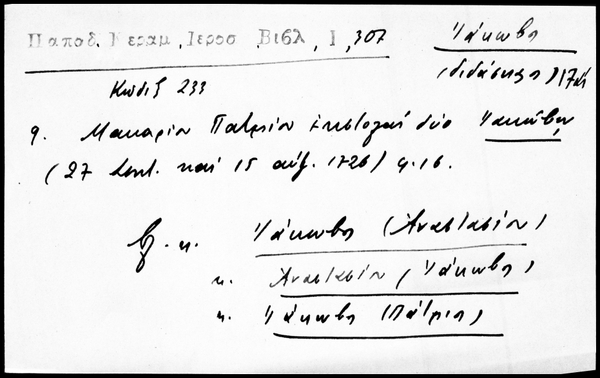 Παπαδ. Κεραμ, Ιεροσ. Βιβλ, Ι, 307
Ἰάκωβος
(διδάσκαλος) 17
Κώδιξ 233
9. Μακαρίου Πατμίου ἐπιστολαί δύο Ἰακώβῳ
(27 Σεπτ. καί 15 αὐγ. 1726) φ. 16.
βλ. κ. Ἰάκωβος (Ἀναστασίου)
κ. Ἀναστασίου (Ἰάκωβος)
κ. Ἰάκωβος (Πάτμιος)